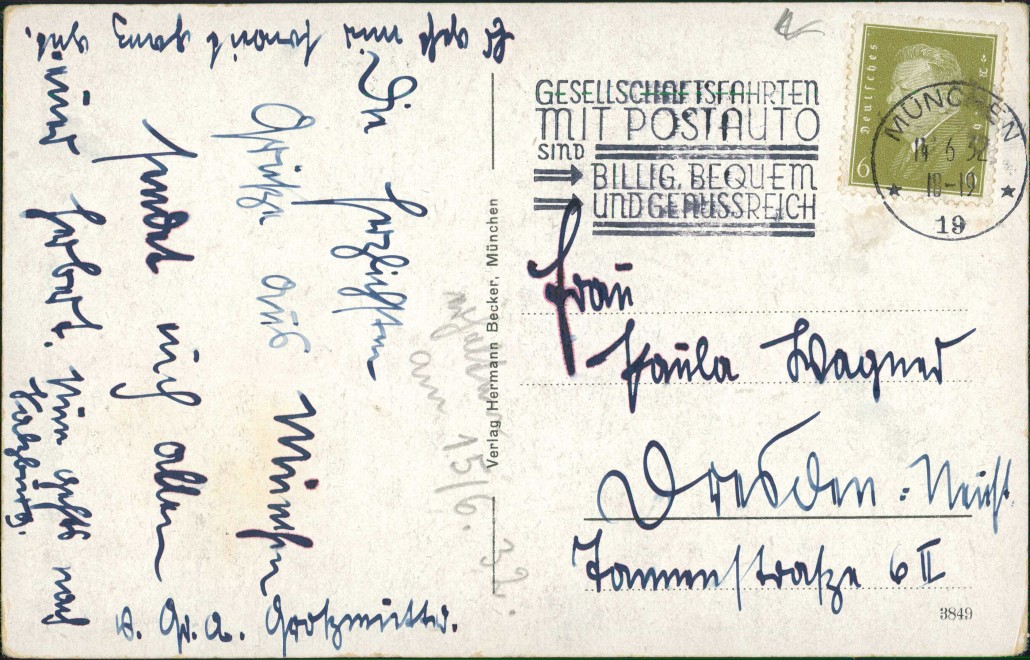 GESELLSCHAFTSFAHRTEN
MIT POSTAUTO
SIND
BILLIG, BEQUEM
UND GENUSSREICH
Deutsches Reich
6
MÜNCHEN
14 6 32
18-19
19
Die herzlichsten
Grüße aus München
sendet euch allen
Herbert. Nun geht's nach
Salzburg.
Es geht mir soweit ganz gut.
v. Gr. a. Großmutter.
am 15/6. 32.
Verlag Hermann Becker, München
Frau
Paula Wagner
Dresden-Neust.
Tannenstraße 6 II
3849